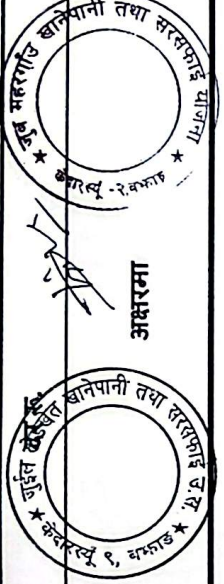 जुव महरगाउ खानेपानी तथा सरसफाइ योजना
केदारस्यूँ -२,बझाङ
अक्षरमा
जुईल खानेपानी तथा सरसफाई उ.स.
केदारस्यूँ ९, बझाङ